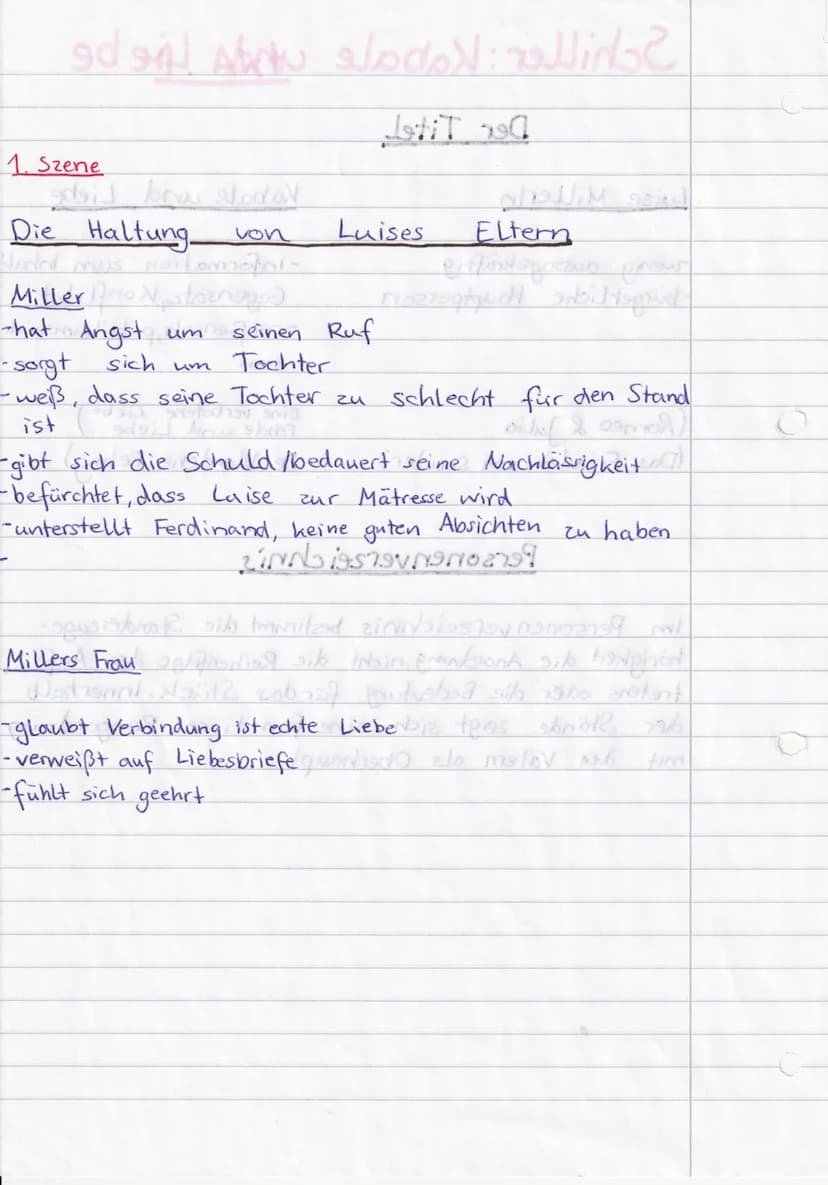 1. Szene
Die Haltung von Luises Eltern
Miller
-hat Angst um seinen Ruf
-sorgt sich um Tochter
-weß, dass seine Tochter zu schlecht für den Stand
ist
-gibt sich die Schuld /bedauert seine Nachlässigkeit
-befürchtet, dass Luise zur Mätresse wird
-unterstellt Ferdinand, keine guten Absichten zu haben
-
Millers Frau
-glaubt Verbindung ist echte Liebe
-verweißt auf Liebesbriefe
-fühlt sich geehrt